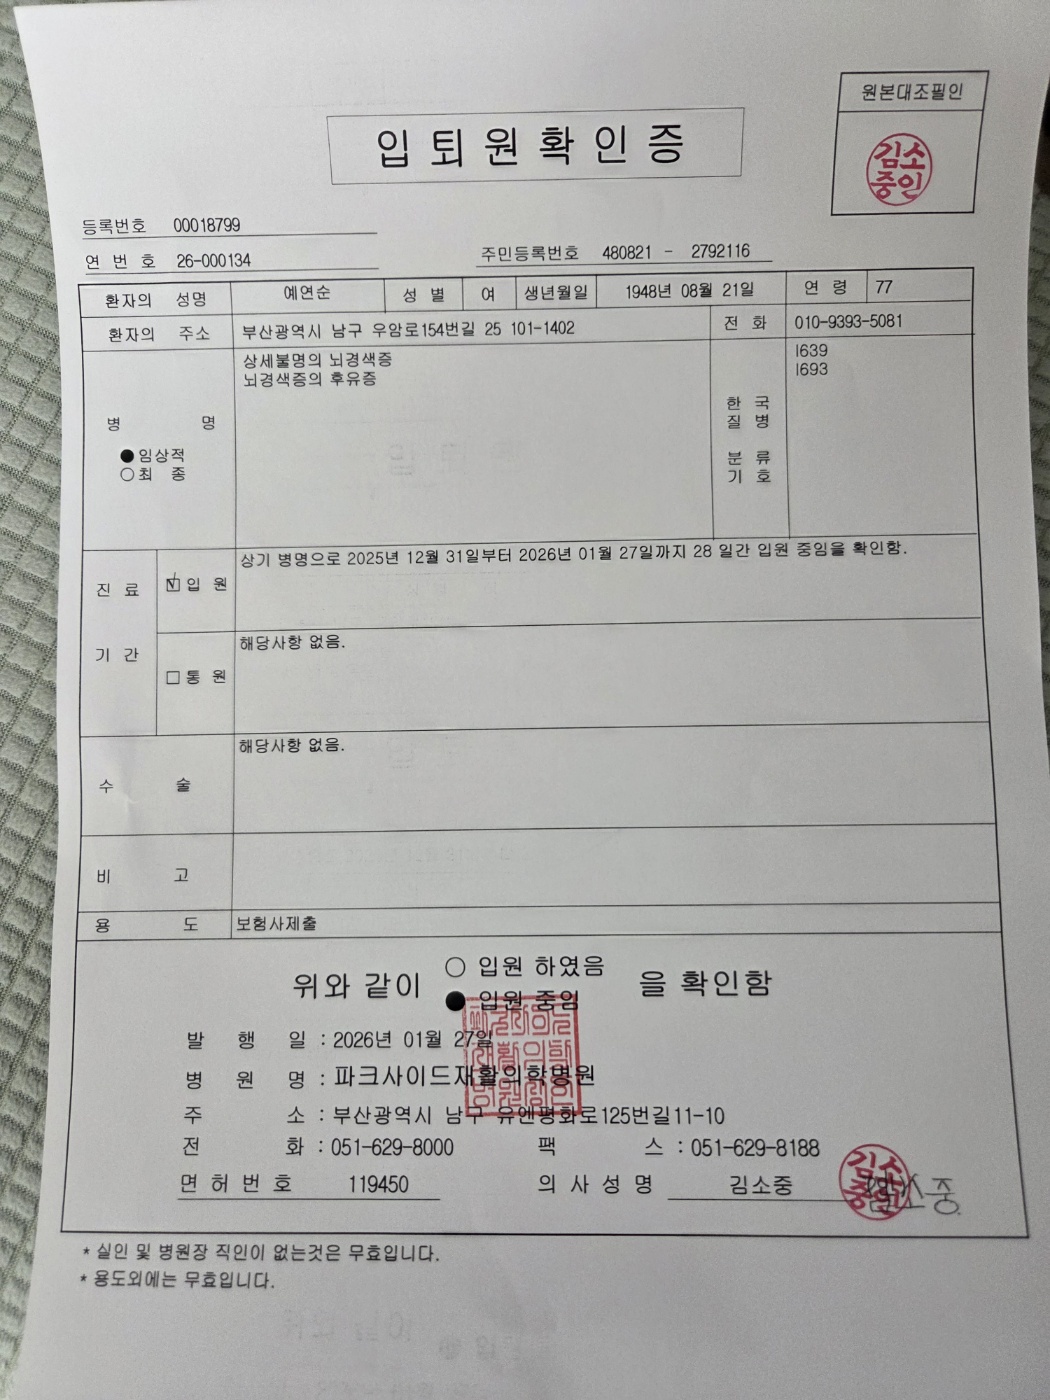 원본대조필인
김소중인
입퇴원확인증
등록번호 00018799
연 번 호 26-000134 주민등록번호 480821 - 2792116
환자의 성명 예연순 성 별 여 생년월일 1948년 08월 21일 연 령 77
환자의 주소 부산광역시 남구 우암로154번길 25 101-1402 전 화 010-9393-5081
상세불명의 뇌경색증 I639
뇌경색증의 후유증 I693
병 명
●임상적
○최 종
한 국
질 병
분 류
기 호
진 료
기 간
☑입 원 상기 병명으로 2025년 12월 31일부터 2026년 01월 27일까지 28 일간 입원 중임을 확인함.
□통 원 해당사항 없음.
수 술 해당사항 없음.
비 고
용 도 보험사제출
위와 같이 ○ 입원 하였음 을 확인함
● 입원 중임
발 행 일 : 2026년 01월 27일
병 원 명 : 파크사이드재활의학병원
주 소 : 부산광역시 남구 유엔평화로125번길11-10
전 화 : 051-629-8000 팩 스 : 051-629-8188
면 허 번 호 119450 의 사 성 명 김소중
김소중인
김소중
* 실인 및 병원장 직인이 없는것은 무효입니다.
* 용도외에는 무효입니다.